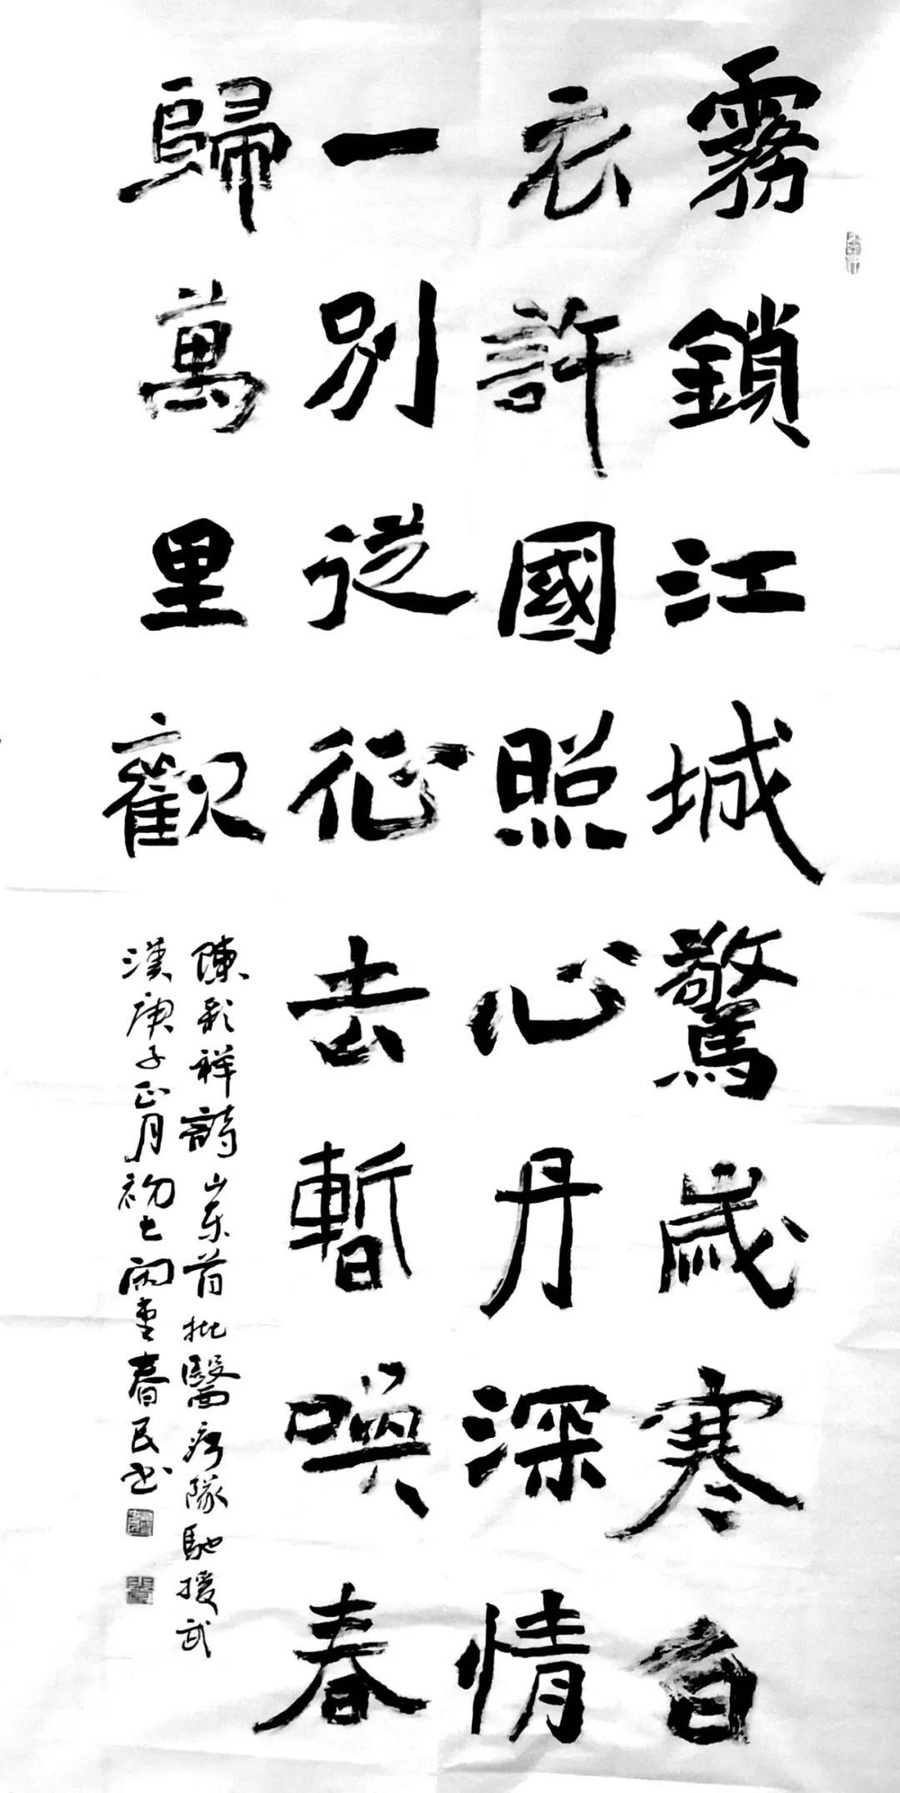 霧鎖江城驚歲寒白
衣許國照心丹深情
一別從征去暫喚春
歸萬里歡
陳彩祥詩山東首批醫療隊馳援武
漢庚子正月初七閑堂春民書